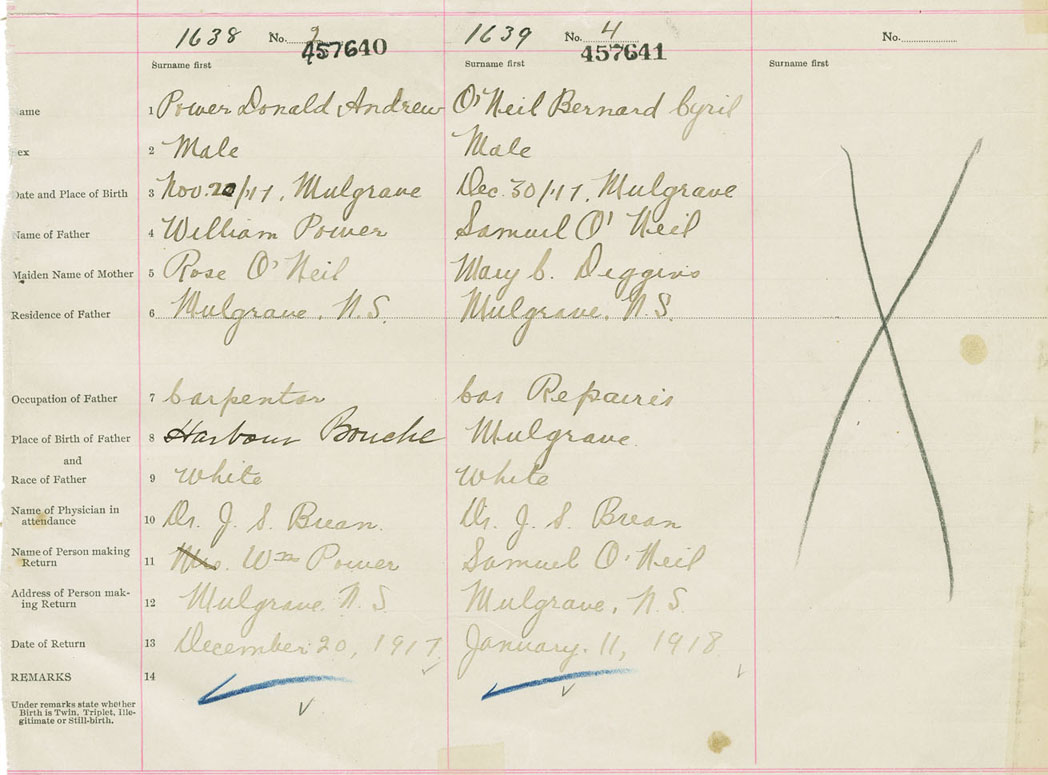 1638 No. 2 1639 No. 4 No.
457640 457641
Surname first Surname first Surname first
ame 1 Power Donald Andrew O'Neil Bernard Cyril
ex 2 Male Male
Date and Place of Birth 3 Nov. 20/17, Mulgrave Dec. 30/17, Mulgrave
Name of Father 4 William Power Samuel O'Neil
Maiden Name of Mother 5 Rose O'Neil Mary C. Deggins
Residence of Father 6 Mulgrave, N.S. Mulgrave, N.S.
Occupation of Father 7 Carpenter Car Repairer
Place of Birth of Father 8 Harbour Bouche Mulgrave
and
Race of Father 9 White White
Name of Physician in
attendance 10 Dr. J. S. Brean. Dr. J. S. Brean
Name of Person making
Return 11 Mrs. Wm Power Samuel O'Neil
Address of Person mak-
ing Return 12 Mulgrave N.S. Mulgrave, N.S.
Date of Return 13 December 20, 1917 January. 11, 1918
REMARKS 14
Under remarks state whether
Birth is Twin, Triplet, Ille-
gitimate or Still-birth.